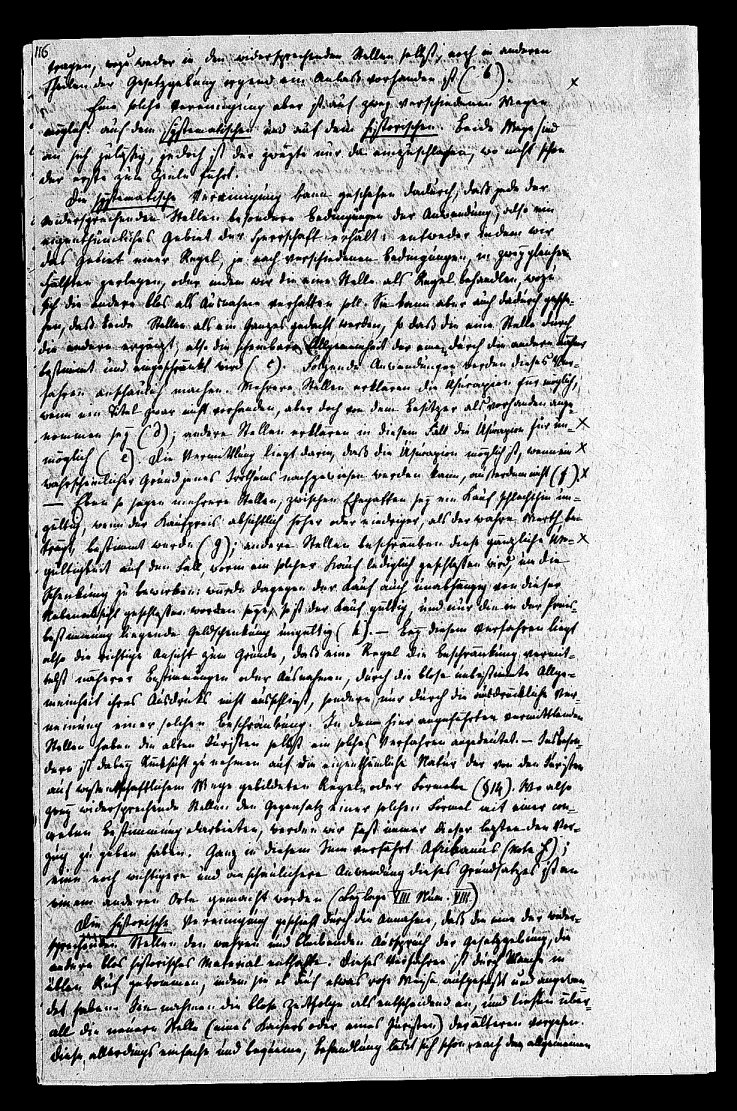 116
tragen, wozu weder in den widersprechenden Stellen selbst, noch in anderen
Theilen der Gesetzgebung irgend ein Anlaß vorhanden ist (b).
Eine solche Vereinigung aber ist auf zwey verschiedenen Wegen
möglich: auf dem systematischen und auf dem historischen. Beide Wege sind
an sich zulässig, jedoch ist der zweyte nur da einzuschlagen, wo nicht schon
der erste zum Ziele führt.
Die systematische Vereinigung kann geschehen dadurch, daß jede der
widersprechenden Stellen besondere Bedingungen der Anwendung, also ein
eigenthümliches Gebiet der Herrschaft erhält: entweder indem wir
das Gebiet einer Regel, je nach verschiedenen Bedingungen, in zwey gleiche
Hälften zerlegen, oder indem wir die eine Stelle als Regel behandeln, wozu
sich die andere blos als Ausnahme verhalten soll. Sie kann aber auch dadurch gesche-
hen, daß beide Stellen als ein Ganzes gedacht werden, so daß die eine Stelle durch
die andere ergänzt, also die scheinbare Allgemeinheit der einen durch die andere näher
bestimmt und eingeschränkt wird (c). Folgende Anwendungen werden dieses Ver-
fahren anschaulich machen. Mehrere Stellen erklären die Usucapion für möglich,
wenn ein Titel zwar nicht vorhanden, aber doch von dem Besitzer als vorhanden ange-
nommen sey (d); andere Stellen erklären in diesem Fall die Usucapion für un-
möglich (e). Die Vermittlung liegt darin, daß die Usucapion möglich ist, wenn ein
wahrscheinlicher Grund jenes Irrthums nachgewiesen werden kann, außerdem nicht (f).
— Eben so sagen mehrere Stellen, zwischen Ehegatten sey ein Kauf schlechthin un-
gültig, wenn der Kaufpreis absichtlich höher oder niedriger, als der wahre Werth be-
trägt, bestimmt werde (g); andere Stellen beschränken diese gänzliche Un-
gültigkeit auf den Fall, worin ein solcher Kauf lediglich geschlossen wird, um die
Schenkung zu bewirken: würde dagegen der Kauf auch unabhängig von dieser
Nebenabsicht geschlossen worden seyn, so ist der Kauf gültig, und nur die in der Preis-
bestimmung liegende Geldschenkung ungültig (h). — Bey diesem Verfahren liegt
also die richtige Ansicht zum Grunde, daß eine Regel die Beschränkung vermit-
telst näherer Bestimmungen oder Ausnahmen, durch die blose unbestimmte Allge-
meinheit ihres Ausdrucks nicht ausschließt, sondern nur durch die ausdrückliche Ver-
neinung einer solchen Beschränkung. In denen hier angeführten vermittlenden
Stellen haben die alten Juristen selbst ein solches Verfahren angedeutet. — Insbeson-
dere ist dabey Rücksicht zu nehmen auf die eigenthümliche Natur der von den Juristen
auf wissenschaftlichem Wege gebildeten Regeln oder Formeln (§ 14). Wo also
zwey widersprechende Stellen den Gegensatz einer solchen Formel mit einer con-
creten Bestimmung darbieten, werden wir fast immer dieser letzten den Vor-
zug zu geben haben. Ganz in diesem Sinn verfährt Afrikanus (Note h);
eine noch wichtigere und anschaulichere Anwendung dieses Grundsatzes ist an
einem anderen Orte gemacht worden (Beylage VIII Num. VIII)
Die historische Vereinigung geschieht durch die Annahme, daß die eine der wider-
sprechenden Stellen den wahren und bleibenden Ausspruch der Gesetzgebung, die
andere blos historisches Material enthalte. Dieses Verfahren ist durch Manche in
üblen Ruf gekommen, indem sie es auf etwas rohe Weise aufgefaßt und angewen-
det haben. Sie nahmen die blose Zeitfolge als entscheidend an, und ließen über-
all die neuere Stelle (eines Kaisers oder eines Juristen) der älteren vorgehen.
Diese, allerdings einfache und bequeme, Behandlung lässt sich schon nach den allgemeinen